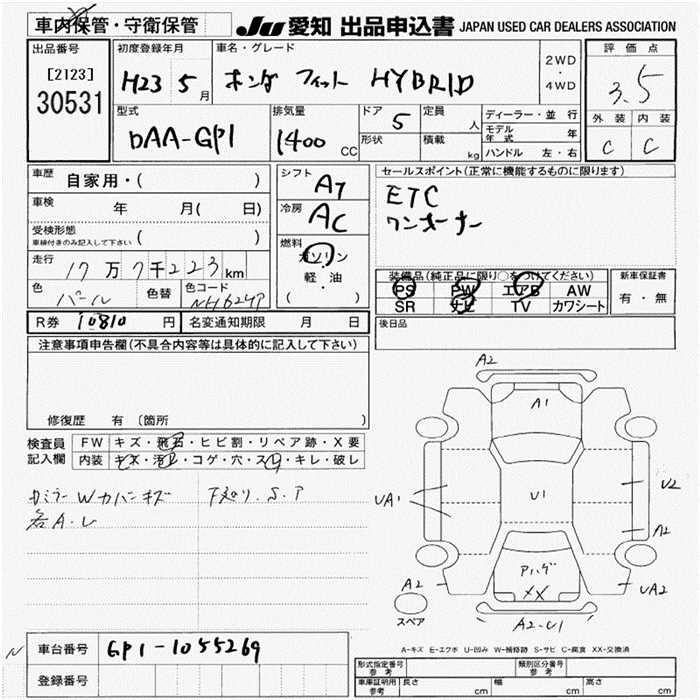 車内保管・守衛保管
JU 愛知 出品申込書 JAPAN USED CAR DEALERS ASSOCIATION
出品番号
[2123]
30531
初度登録年月
H23 5月
車名・グレード
ホンダ フィット HYBRID
2WD
・
4WD
評価点
3.5
外装 内装
C C
型式
DAA-GP1
排気量
1400 CC
ドア 5
形状
定員 人
積載 kg
ディーラー・並行
モデル年式 年
ハンドル 左・右
車歴 自家用・( )
車検 年 月( 日)
受検形態
車検付きのみ記入して下さい ( )
走行 17万7千223km
色 パール
色替
色コード NH624P
シフト AT
冷房 AC
燃料
ガソリン
・
軽・油
( )
セールスポイント(正常に機能するものに限ります)
ETC
ワンオーナー
装備品(純正品に限り○をつけてください)
PS PW エアB AW
SR ナビ TV カワシート
新車保証書
有・無
R券 10810 円
名変通知期限 月 日
後日品
注意事項申告欄(不具合内容等は具体的に記入して下さい)
修復歴 有 (箇所 )
検査員記入欄
FW キズ・飛石・ヒビ割・リペア跡・X要
内装 キズ・汚レ・コゲ・穴・スレ・キレ・破レ
W カバーキズ
各A.U
下廻り.S.P
A2
A1
UA1
U1
U2
A2
Pハゲ
XX
A2
UA2
A2-U1
スペア
A-キズ E-エクボ U-凹み W-補修跡 S-サビ C-腐食 XX-交換済
N
車台番号 GP1-1055269
登録番号
形式指定番号 参考
類別区分番号 参考
車庫証明用 参考 長さ cm 幅 cm 高さ cm